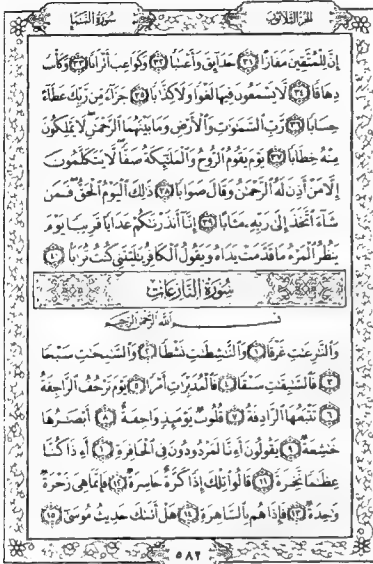 الجزء الثلاثون سورة النبإ
إِنَّ لِلْمُتَّقِينَ مَفَازًا ٣١ حَدَائِقَ وَأَعْنَٰبًا ٣٢ وَكَوَاعِبَ أَتْرَابًا ٣٣ وَكَأْسًا
دِهَاقًا ٣٤ لَّا يَسْمَعُونَ فِيهَا لَغْوًا وَلَا كِذَّٰبًا ٣٥ جَزَآءً مِّن رَّبِّكَ عَطَآءً
حِسَابًا ٣٦ رَّبِّ ٱلسَّمَٰوَٰتِ وَٱلْأَرْضِ وَمَا بَيْنَهُمَا ٱلرَّحْمَٰنِ لَا يَمْلِكُونَ
مِنْهُ خِطَابًا ٣٧ يَوْمَ يَقُومُ ٱلرُّوحُ وَٱلْمَلَٰٓئِكَةُ صَفًّا لَّا يَتَكَلَّمُونَ
إِلَّا مَنْ أَذِنَ لَهُ ٱلرَّحْمَٰنُ وَقَالَ صَوَابًا ٣٨ ذَٰلِكَ ٱلْيَوْمُ ٱلْحَقُّ فَمَن
شَآءَ ٱتَّخَذَ إِلَىٰ رَبِّهِۦ مَـَٔابًا ٣٩ إِنَّآ أَنذَرْنَٰكُمْ عَذَابًا قَرِيبًا يَوْمَ
يَنظُرُ ٱلْمَرْءُ مَا قَدَّمَتْ يَدَاهُ وَيَقُولُ ٱلْكَافِرُ يَٰلَيْتَنِى كُنتُ تُرَٰبًا ٤٠
سورة النازعات
بسم الله الرحمن الرحيم
وَٱلنَّٰزِعَٰتِ غَرْقًا ١ وَٱلنَّٰشِطَٰتِ نَشْطًا ٢ وَٱلسَّٰبِحَٰتِ سَبْحًا
٣ فَٱلسَّٰبِقَٰتِ سَبْقًا ٤ فَٱلْمُدَبِّرَٰتِ أَمْرًا ٥ يَوْمَ تَرْجُفُ ٱلرَّاجِفَةُ
٦ تَتْبَعُهَا ٱلرَّادِفَةُ ٧ قُلُوبٌ يَوْمَئِذٍ وَاجِفَةٌ ٨ أَبْصَٰرُهَا
خَٰشِعَةٌ ٩ يَقُولُونَ أَءِنَّا لَمَرْدُودُونَ فِى ٱلْحَافِرَةِ ١٠ أَءِذَا كُنَّا
عِظَٰمًا نَّخِرَةً ١١ قَالُوا۟ تِلْكَ إِذًا كَرَّةٌ خَاسِرَةٌ ١٢ فَإِنَّمَا هِىَ زَجْرَةٌ
وَٰحِدَةٌ ١٣ فَإِذَا هُم بِٱلسَّاهِرَةِ ١٤ هَلْ أَتَىٰكَ حَدِيثُ مُوسَىٰٓ ١٥
٥٨٢